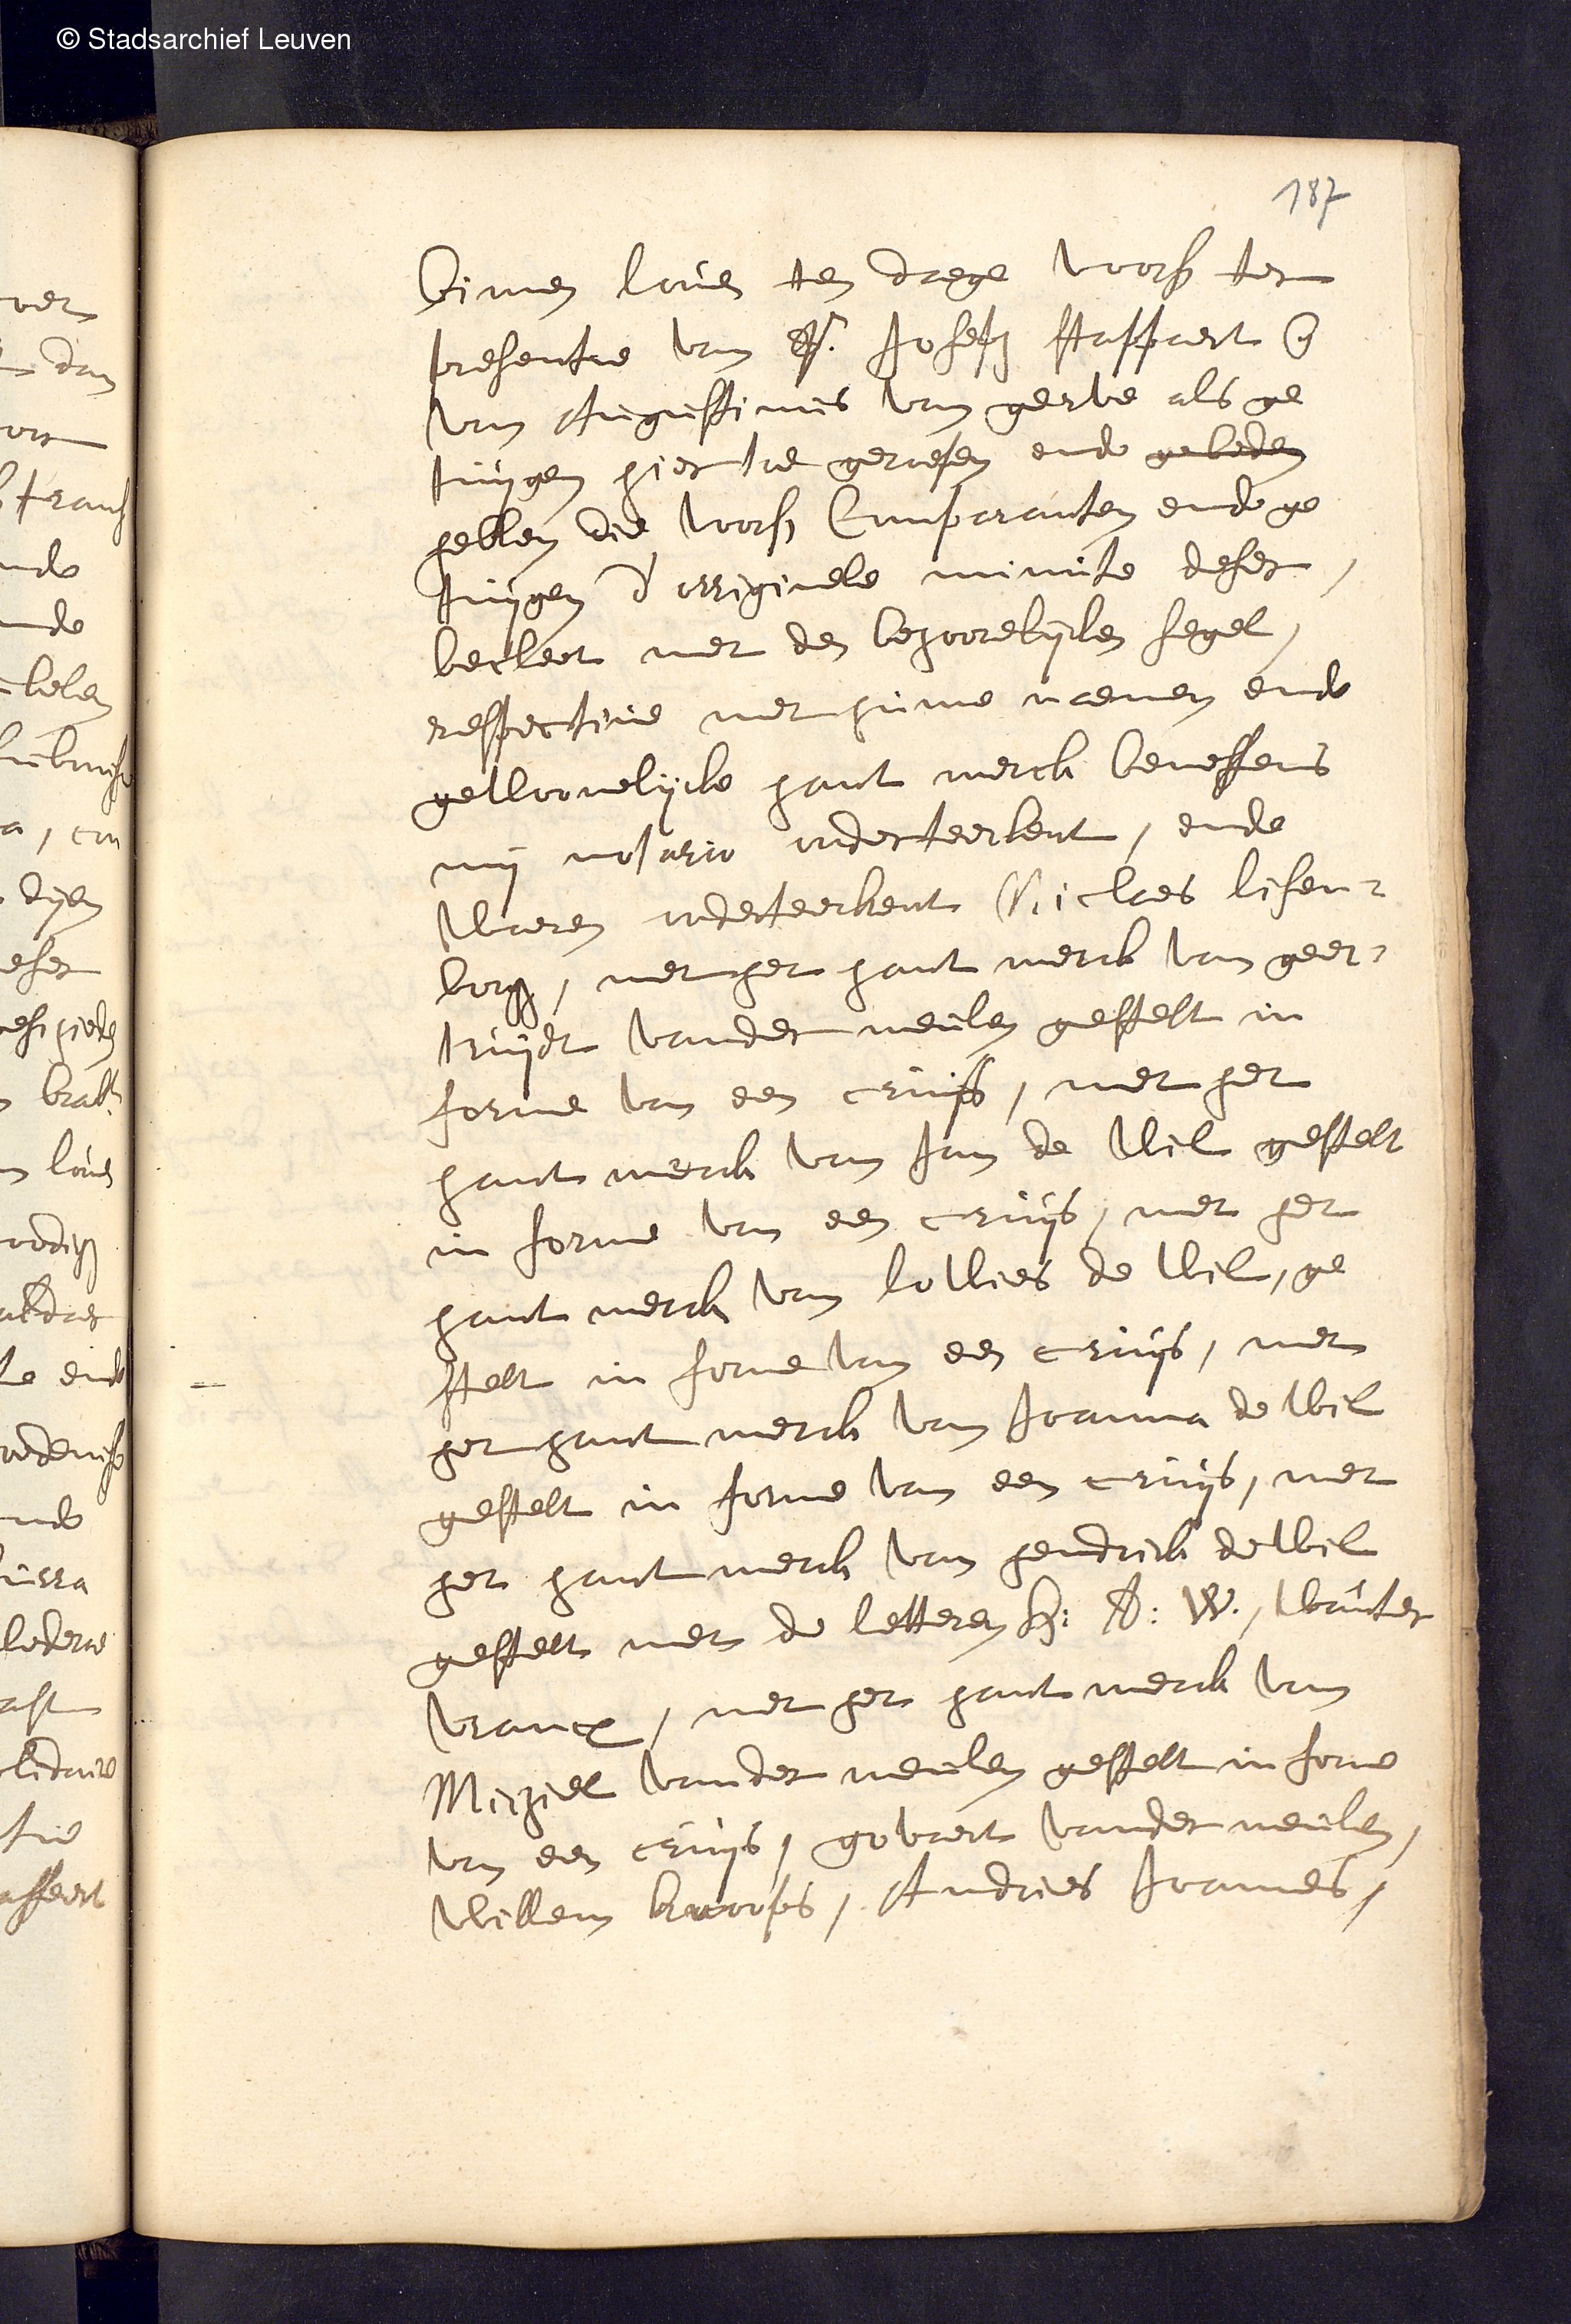 © Stadsarchief Leuven
187
binnen loven ten daege voors ter
presentie van Sr. Joseph stappaert e
van Augustinus van gerve als ge
tuijgen hier toe geroepen ende gebeden
hebben die voors Comparanten ende ge
tuijgen d'origginele minute deser,
becleet met den behoorelijcken segel,
respective met hunne naemen ende
gewoonelijcke hant merck beneffens
mij notario onderteeckent, ende
waeren onderteeckent Niclaes lisen-
borgh, met het hant merck van geer-
truijdt vander meulen gestelt in
forme van een cruijs, met het
hant merck van Jan de Wil gestelt
in forme van een cruijs, met het
hant merck van lowies de Wil, ge
stelt in forme van een cruijs, met
het hant merck van Joanna de Wil
gestelt in forme van een cruijs, met
het hant merck van hendrick de Wil
gestelt met de letteren H: D: W., Wauter
vrancx, met het hant merck van
Michiel vander meulen gestelt in forme
van een cruijs, govaert vander meulen,
Willem Andries Joannes,